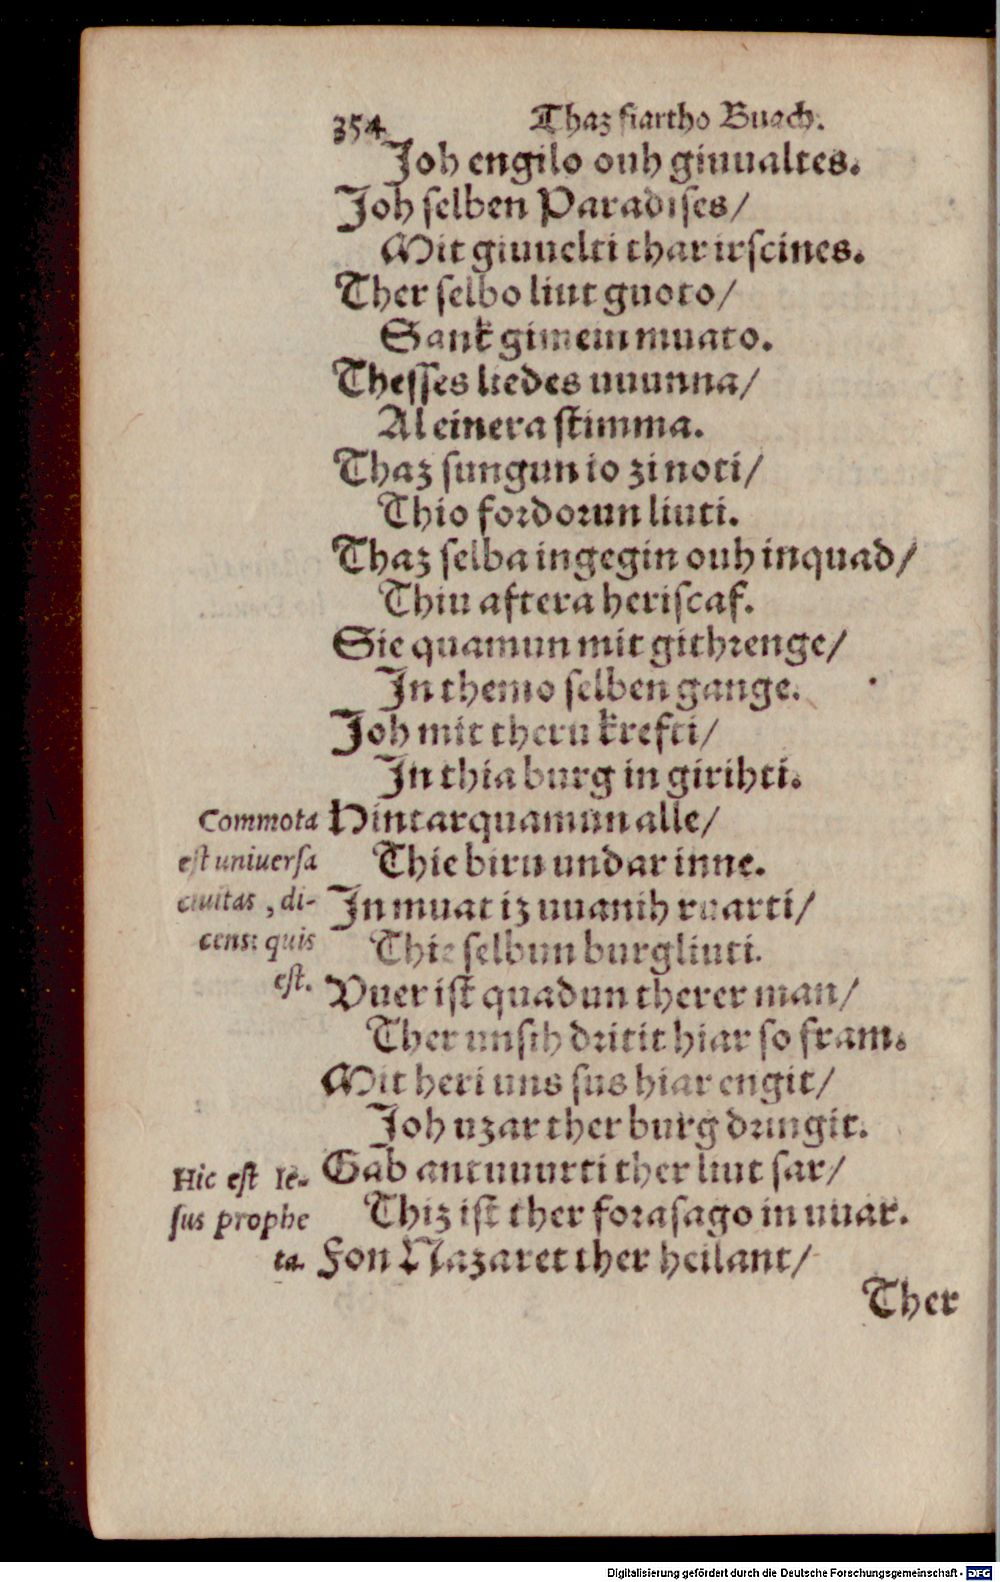 354
Thaz fiartho Buach.
Joh engilo ouh giuualtes.
Joh selben Paradises/
Mit giuuelti thar irscines.
Ther selbo liut guoto/
Sank gimeinmuato.
Thesses liedes uuunna/
Al einera stimma.
Thaz sungun io zi noti/
Thio fordorun liuti.
Thaz selba ingegin ouh inquad/
Thiu aftera heriscaf.
Sie quamun mit githrenge/
In themo selben gange.
Joh mit theru krefti/
In thia burg in girihti.
Commota est universa civitas, dicens: quis est.
Hintarquamun alle/
Thie biru undar inne.
In muat iz uuanih ruarti/
Thie selbun burgliuti.
Vuer ist quadun therer man/
Ther unsih dritit hiar so fram.
Mit heri uns sus hiar engit/
Joh uzar ther burg dringit.
Hic est Iesus propheta.
Gab antuuurti ther liut sar/
Thiz ist ther forasago in uuar.
Fon Nazaret ther heilant/
Ther
Digitalisierung gefördert durch die Deutsche Forschungsgemeinschaft - DFG